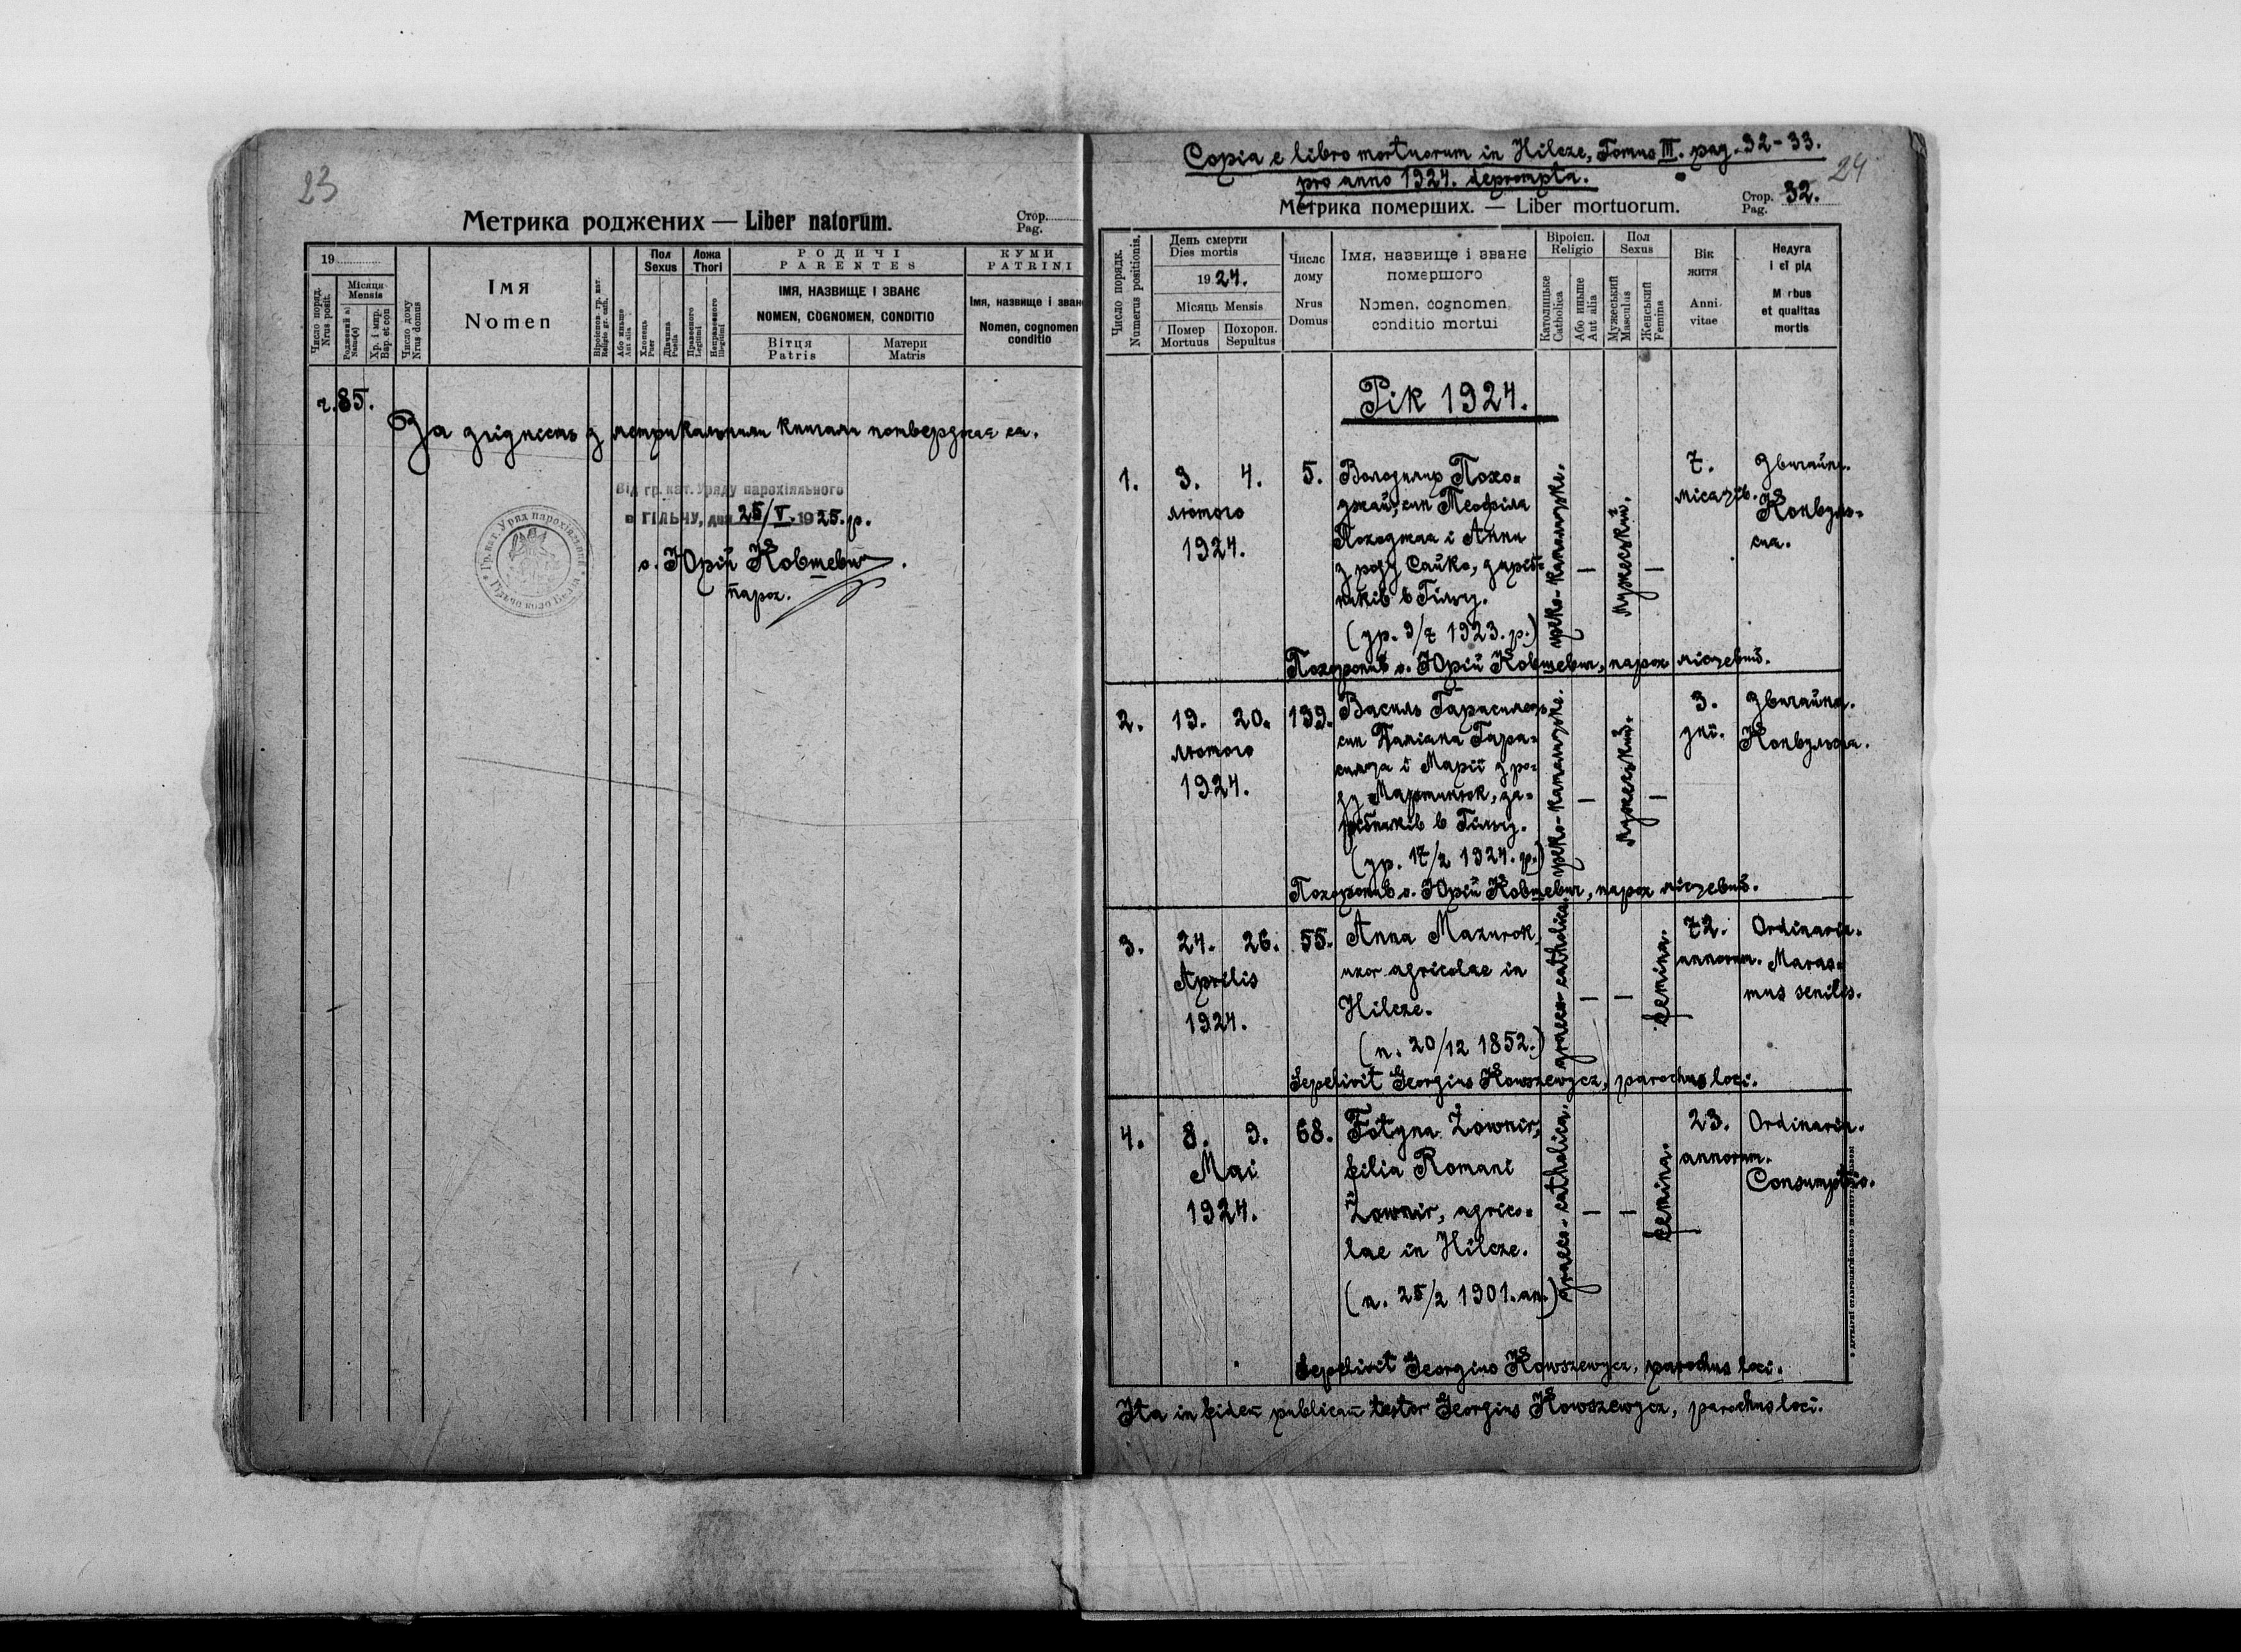 23
Метрика роджених — Liber natorum.
Стор.
Pag.
19
Число поряд.
Nrus posit.
Місяця
Mensis
Число дому
Nrus domus
Імя
Nomen
Або иньше
Aut alia
Пол
Sexus
Хлопець
Puer
Дівчина
Puella
Ложа
Thori
Правесного
Legitimi
Неправесного
Illegitimi
РОДИЧІ
PARENTES
ІМЯ, НАЗВИЩЕ І ЗВАНЄ
NOMEN, COGNOMEN, CONDITIO
Вітця
Patris
Матери
Matris
КУМИ
PATRINI
Імя, назвище і зван
Nomen, cognomen
conditio
ч. 85.
За згідність з метрикальними книгами потверджає ся.
Від гр. кат. Уряду парохіяльного
в ГІЛЬЧУ, дня 25/V. 1925. р.
о. Юрій Ковшевич.
парох.
Copia e libro mortuorum in Hilcze, Tomus III. pag. 32-33.
pro anno 1924. deprompta.
24
Метрика померших. — Liber mortuorum.
Стор.
Pag. 32.
Число порядк.
Numerus positionis.
День смерти
Dies mortis
1924.
Місяць Mensis
Помер
Mortuus
Похорон.
Sepultus
Число
дому
Nrus
Domus
Імя, назвище і званє
помершого
Nomen, cognomen
conditio mortui
Віроісп.
Religio
Католицьке
Catholica
Або иньше
Aut alia
Пол
Sexus
Мужеський
Masculus
Женський
Femina
Вік
житя
Anni
vitae
Недуга
і єї рід
Morbus
et qualitas
mortis
Рік 1924.
1. 3. 4. 5.
лютого
1924.
Володимир Похо=
джай, син Теофіля
Походжая і Анни
з роду Сайко, заріб=
ників в Гільчу.
(ур. 9/7 1923. р.)
греко-католицьке.
—
мужеський.
—
7.
місяців.
Звичайна.
Конвуль=
сия.
Похоронив о. Юрій Ковшевич, парох місцевий.
2. 19. 20. 139.
лютого
1924.
Василь Гарасимець
син Даміана Гара=
симця і Марії з ро=
ду Мартинюк, за=
рібників в Гільчу.
(ур. 17/2 1924. р.)
греко-католицьке.
—
мужеський.
—
3.
дні.
Звичайна.
Конвульсия.
Похоронив о. Юрій Ковшевич, парох місцевий.
3. 24. 26. 55.
Aprilis
1924.
Anna Mazurok,
uxor agricolae in
Hilcze.
(n. 20/12 1852.)
graeco-catholica.
—
—
femina.
72.
annorum.
Ordinaria.
Maras=
mus senilis.
Sepelivit Georgius Kowszewycz, parochus loci.
4. 8. 9. 68.
Mai
1924.
Fotyna Żownir,
filia Romani
Żownir, agrico=
lae in Hilcze.
(n. 25/2 1901. an.)
graeco-catholica.
—
—
femina.
23.
annorum.
Ordinaria.
Consumptio.
Sepelivit Georgius Kowszewycz, parochus loci.
Ita in fidem publicam testor Georgius Kowszewycz, parochus loci.